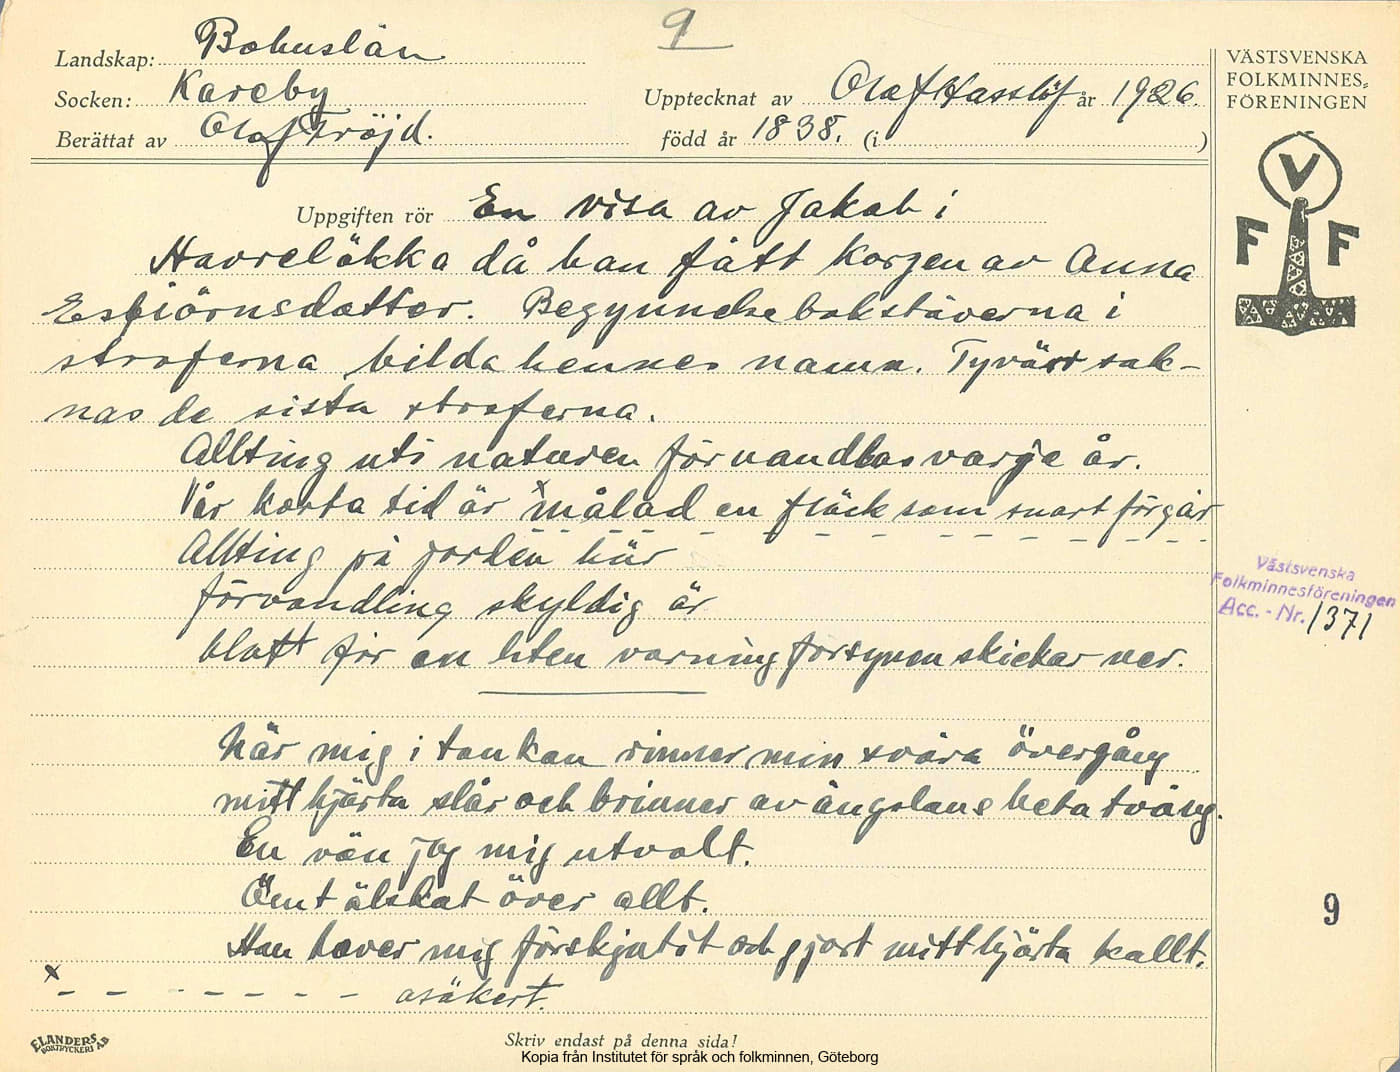 9
Landskap: Bohuslän
Socken: Kareby
Berättat av Olaf Fröjd.
Upptecknat av Olaf Hasslöf år 1926.
född år 1838. (i )
VÄSTSVENSKA
FOLKMINNES=
FÖRENINGEN
V
F F
Uppgiften rör En visa av Jakob i
Havrelökka då han fått korgen av Anna
Esbiörnsdotter. Begynnelsebokstäverna i
stroferna bilda hennes namn. Tyvärr sak-
nas de sista stroferna.
Allting uti naturen förvandlas varje år.
Vår korta tid är x målad en fläck som snart förgår
Allting på jorden här
förvandling skyldig är
blott för en liten varning försynen skickar ner.
När mig i tankan rinner min svåra övergång
mitt hjärta slår och brinner av ängslans heta tvång.
En vän jag mig utvalt.
Ömt älskat över allt.
Han haver mig förskjutit och gjort mitt hjärta kallt.
x
- - - - - - - - osäkert.
Västsvenska
Folkminnesföreningen
Acc. - Nr. 1371
9
ELANDERS
BOKTRYCKERI AB
Skriv endast på denna sida!
Kopia från Institutet för språk och folkminnen, Göteborg